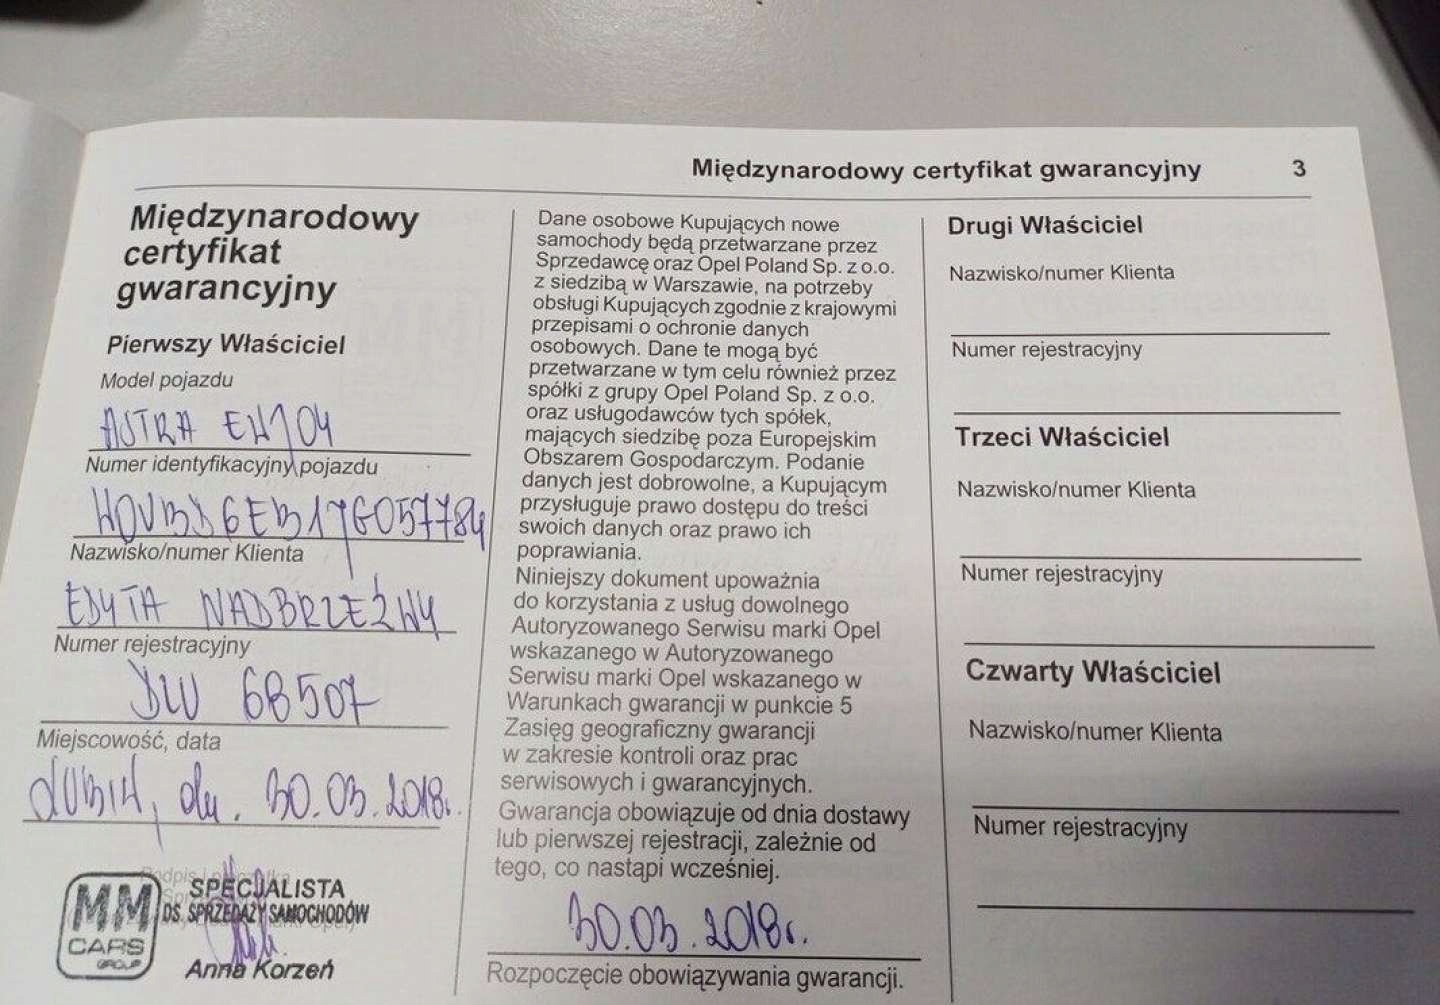 Międzynarodowy certyfikat gwarancyjny 3
Międzynarodowy
certyfikat
gwarancyjny
Pierwszy Właściciel
Model pojazdu
ASTRA EHJ04
Numer identyfikacyjny pojazdu
W0VBD6EB1JG057784
Nazwisko/numer Klienta
EDYTA NADBRZEŻNY
Numer rejestracyjny
DLU 68507
Miejscowość, data
LUBIN, dn. 30.03.2018r.
SPECJALISTA
DS. SPRZEDAŻY SAMOCHODÓW
MM
CARS
GROUP
Anna Korzeń
Dane osobowe Kupujących nowe
samochody będą przetwarzane przez
Sprzedawcę oraz Opel Poland Sp. z o.o.
z siedzibą w Warszawie, na potrzeby
obsługi Kupujących zgodnie z krajowymi
przepisami o ochronie danych
osobowych. Dane te mogą być
przetwarzane w tym celu również przez
spółki z grupy Opel Poland Sp. z o.o.
oraz usługodawców tych spółek,
mających siedzibę poza Europejskim
Obszarem Gospodarczym. Podanie
danych jest dobrowolne, a Kupującym
przysługuje prawo dostępu do treści
swoich danych oraz prawo ich
poprawiania.
Niniejszy dokument upoważnia
do korzystania z usług dowolnego
Autoryzowanego Serwisu marki Opel
wskazanego w Autoryzowanego
Serwisu marki Opel wskazanego w
Warunkach gwarancji w punkcie 5
Zasięg geograficzny gwarancji
w zakresie kontroli oraz prac
serwisowych i gwarancyjnych.
Gwarancja obowiązuje od dnia dostawy
lub pierwszej rejestracji, zależnie od
tego, co nastąpi wcześniej.
30.03.2018r.
Rozpoczęcie obowiązywania gwarancji.
Drugi Właściciel
Nazwisko/numer Klienta
Numer rejestracyjny
Trzeci Właściciel
Nazwisko/numer Klienta
Numer rejestracyjny
Czwarty Właściciel
Nazwisko/numer Klienta
Numer rejestracyjny